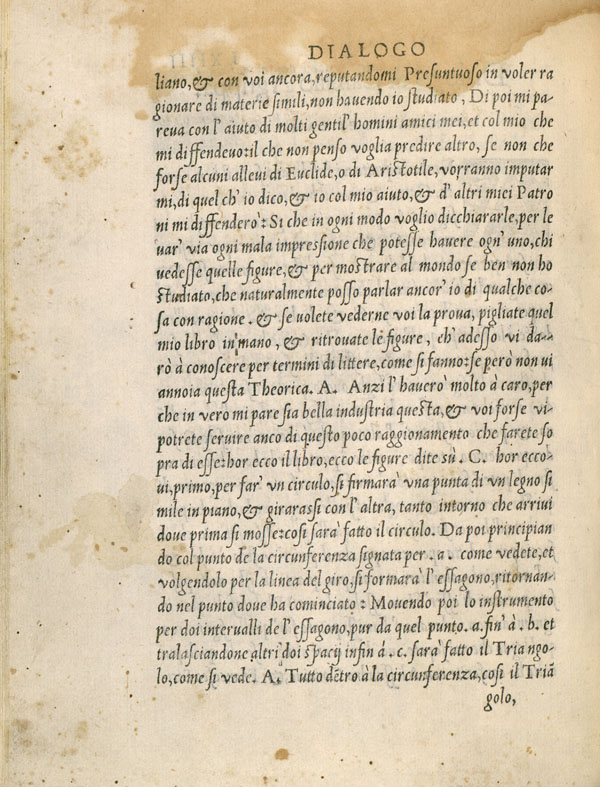 DIALOGO
liano,& con voi ancora,reputandomi Presuntuoso in voler ra
gionare di materie simili,non hauendo io studiato, Di poi mi pa-
reua con l'aiuto di molti gentil'homini amici mei,et col mio che
mi diffendeuo:il che non penso voglia predire altro, se non che
forse alcuni alleui di Euclide,o di Aristotile,vorranno imputar
mi,di quel ch'io dico,& io col mio aiuto,& d'altri miei Patro
ni mi diffenderò: Si che in ogni modo voglio dicchiararle,per le
uar' via ogni mala impressione che potesse hauere ogn'uno,chi
vedesse quelle figure,& per mostrare al mondo se ben non ho
studiato,che naturalmente posso parlar ancor'io di qualche co-
sa con ragione. & se volete vederne voi la prova, pigliate quel
mio libro in mano, & ritrouate le figure, ch'adesso vi da-
rò à conoscere per termini di littere,come si fanno:se però non ui
annoia questa Theorica. A. Anzi l'hauerò molto à caro,per
che in vero mi pare sia bella industria questa,& voi forse vi
potrete seruire anco di questo poco raggionamento che farete so
pra di esse:hor ecco il libro,ecco le figure dite sù. C. hor ecco-
ui,primo,per far' vn circulo,si firmarà vna punta di vn legno si
mile in piano,& girarassi con l'altra, tanto intorno che arriui
doue prima si mosse:cosi sarà fatto il circulo. Da poi principian
do col punto de la circunferenza signata per .a. come vedete,et
volgendolo per la linea del giro,si formarà l'essagono,ritornan-
do nel punto doue ha cominciato: Mouendo poi lo instrumento
per doi interualli de l'essagono,pur da quel punto. a. fin'à .b. et
tralasciandone altri doi spacij infin á .c. sarà fatto il Triango-
lo,come si vede. A. Tutto dẽtro à la circunferenza,cosi il Triã
golo,